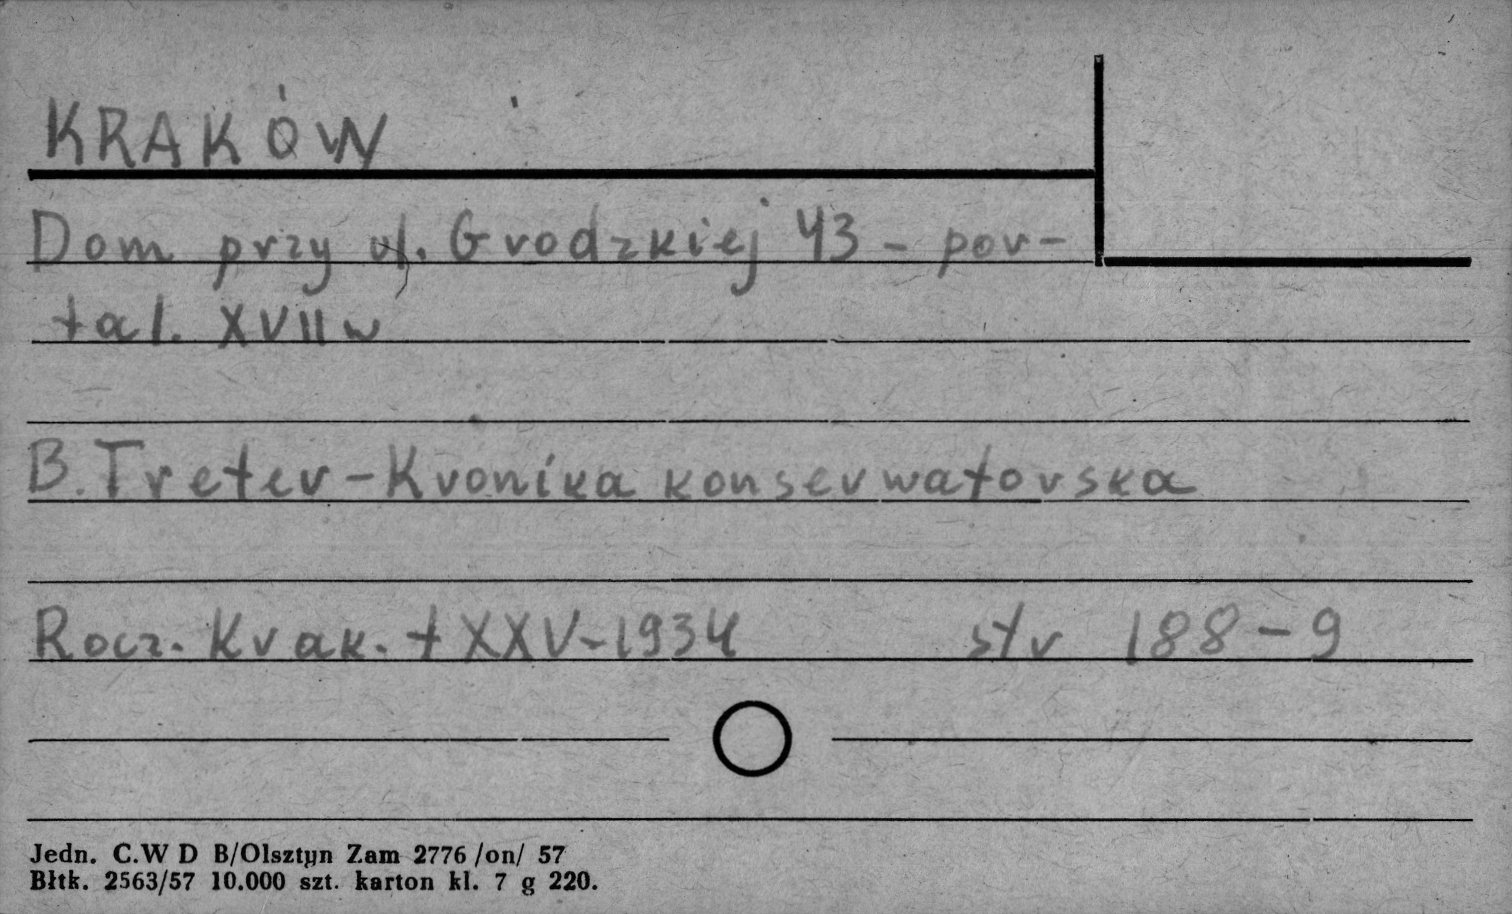 KRAKÓW
Dom przy ul. Grodzkiej 43 - por-
tal. XVII w
B. Treter - Kronika konserwatorska
Rocz. Krak. t XXV - 1934 str 188 - 9
Jedn. C.W D B/Olsztyn Zam 2776 /on/ 57
Błtk. 2563/57 10.000 szt. karton kl. 7 g 220.